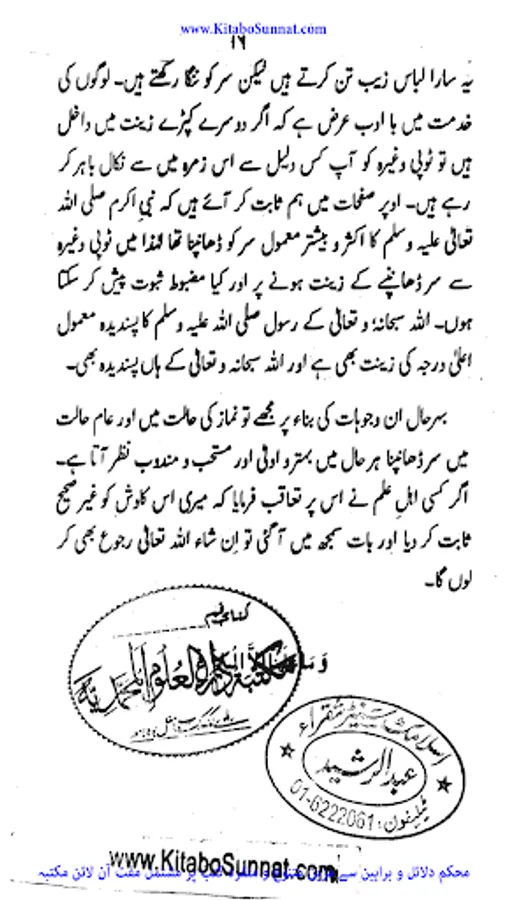 www.KitaboSunnat.com
۱۶
یہ سارا لباس زیب تن کرتے ہیں لیکن سر کو ننگا رکھتے ہیں۔ لوگوں کی
خدمت میں با ادب عرض ہے کہ اگر دوسرے کپڑے زینت میں داخل
ہیں تو ٹوپی وغیرہ کو آپ کس دلیل سے اس زمرہ میں سے نکال باہر کر
رہے ہیں۔ اوپر صفحات میں ہم ثابت کر آئے ہیں کہ نبی اکرم صلی اللہ
تعالیٰ علیہ وسلم کا اکثر و بیشتر معمول سر کو ڈھانپنا تھا لہٰذا میں ٹوپی وغیرہ
سے سر ڈھانپنے کے زینت ہونے پر اور کیا مضبوط ثبوت پیش کر سکتا
ہوں۔ اللہ سبحانہٗ و تعالیٰ کے رسول صلی اللہ علیہ وسلم کا پسندیدہ معمول
اعلیٰ درجہ کی زینت بھی ہے اور اللہ سبحانہ و تعالیٰ کے ہاں پسندیدہ بھی۔
بہرحال ان وجوہات کی بناء پر مجھے تو نماز کی حالت میں اور عام حالت
میں سر ڈھانپنا ہر حال میں بہتر و اولیٰ اور مستحب و مندوب نظر آتا ہے۔
اگر کسی اہلِ علم نے اس پر تعاقب فرمایا کہ میری اس کاوش کو غیر صحیح
ثابت کر دیا اور بات سمجھ میں آ گئی تو اِن شاء اللہ تعالیٰ رجوع بھی کر
لوں گا۔
وَمَا
العلوم المحمدیہ
اسلامک سینٹر
عبدالرشید
ٹیلیفون: 01-6222061
www.KitaboSunnat.com
محکم دلائل و براہین سے مزین متنوع و منفرد کتب پر مشتمل مفت آن لائن مکتبہ